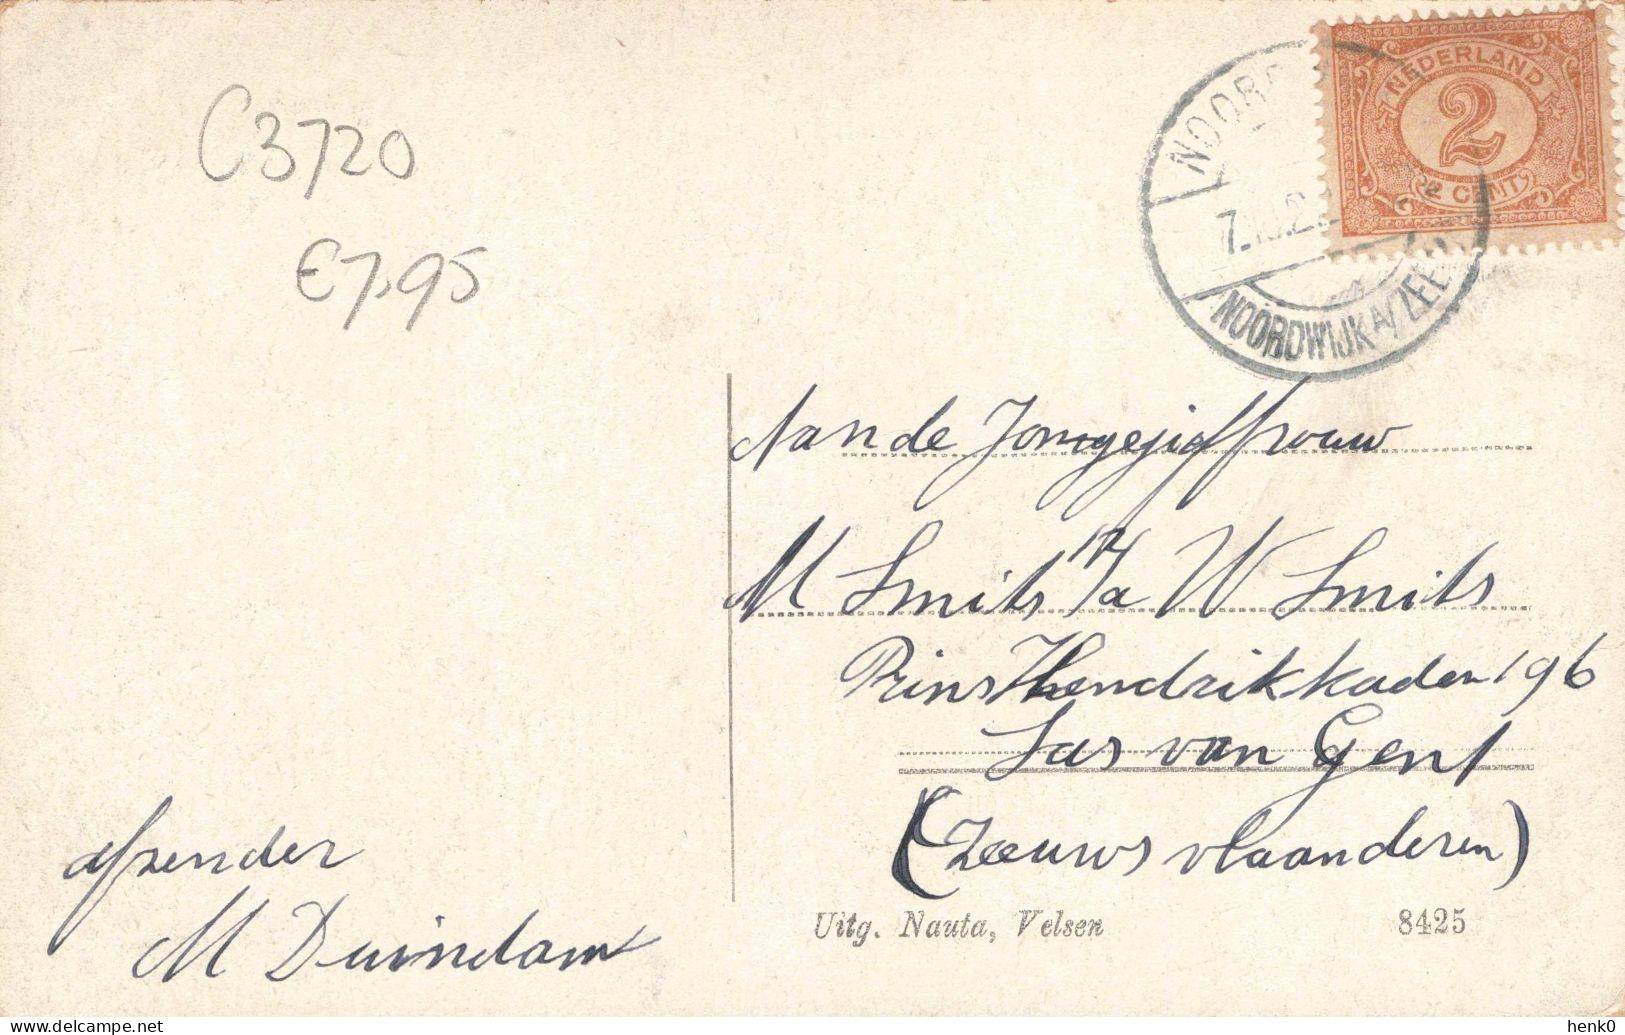 C3720
€7,95
NEDERLAND
2
CENT
NOORDWIJK A/ZEE
Aan de Jongejuffrouw
M Smits p/a W Smits
Prins Hendrikkaden 196
Sas van Gent
(Zeeuws vlaanderen)
afzender
M Duindam
Uitg. Nauta, Velsen 8425
www.delcampe.net
henk0